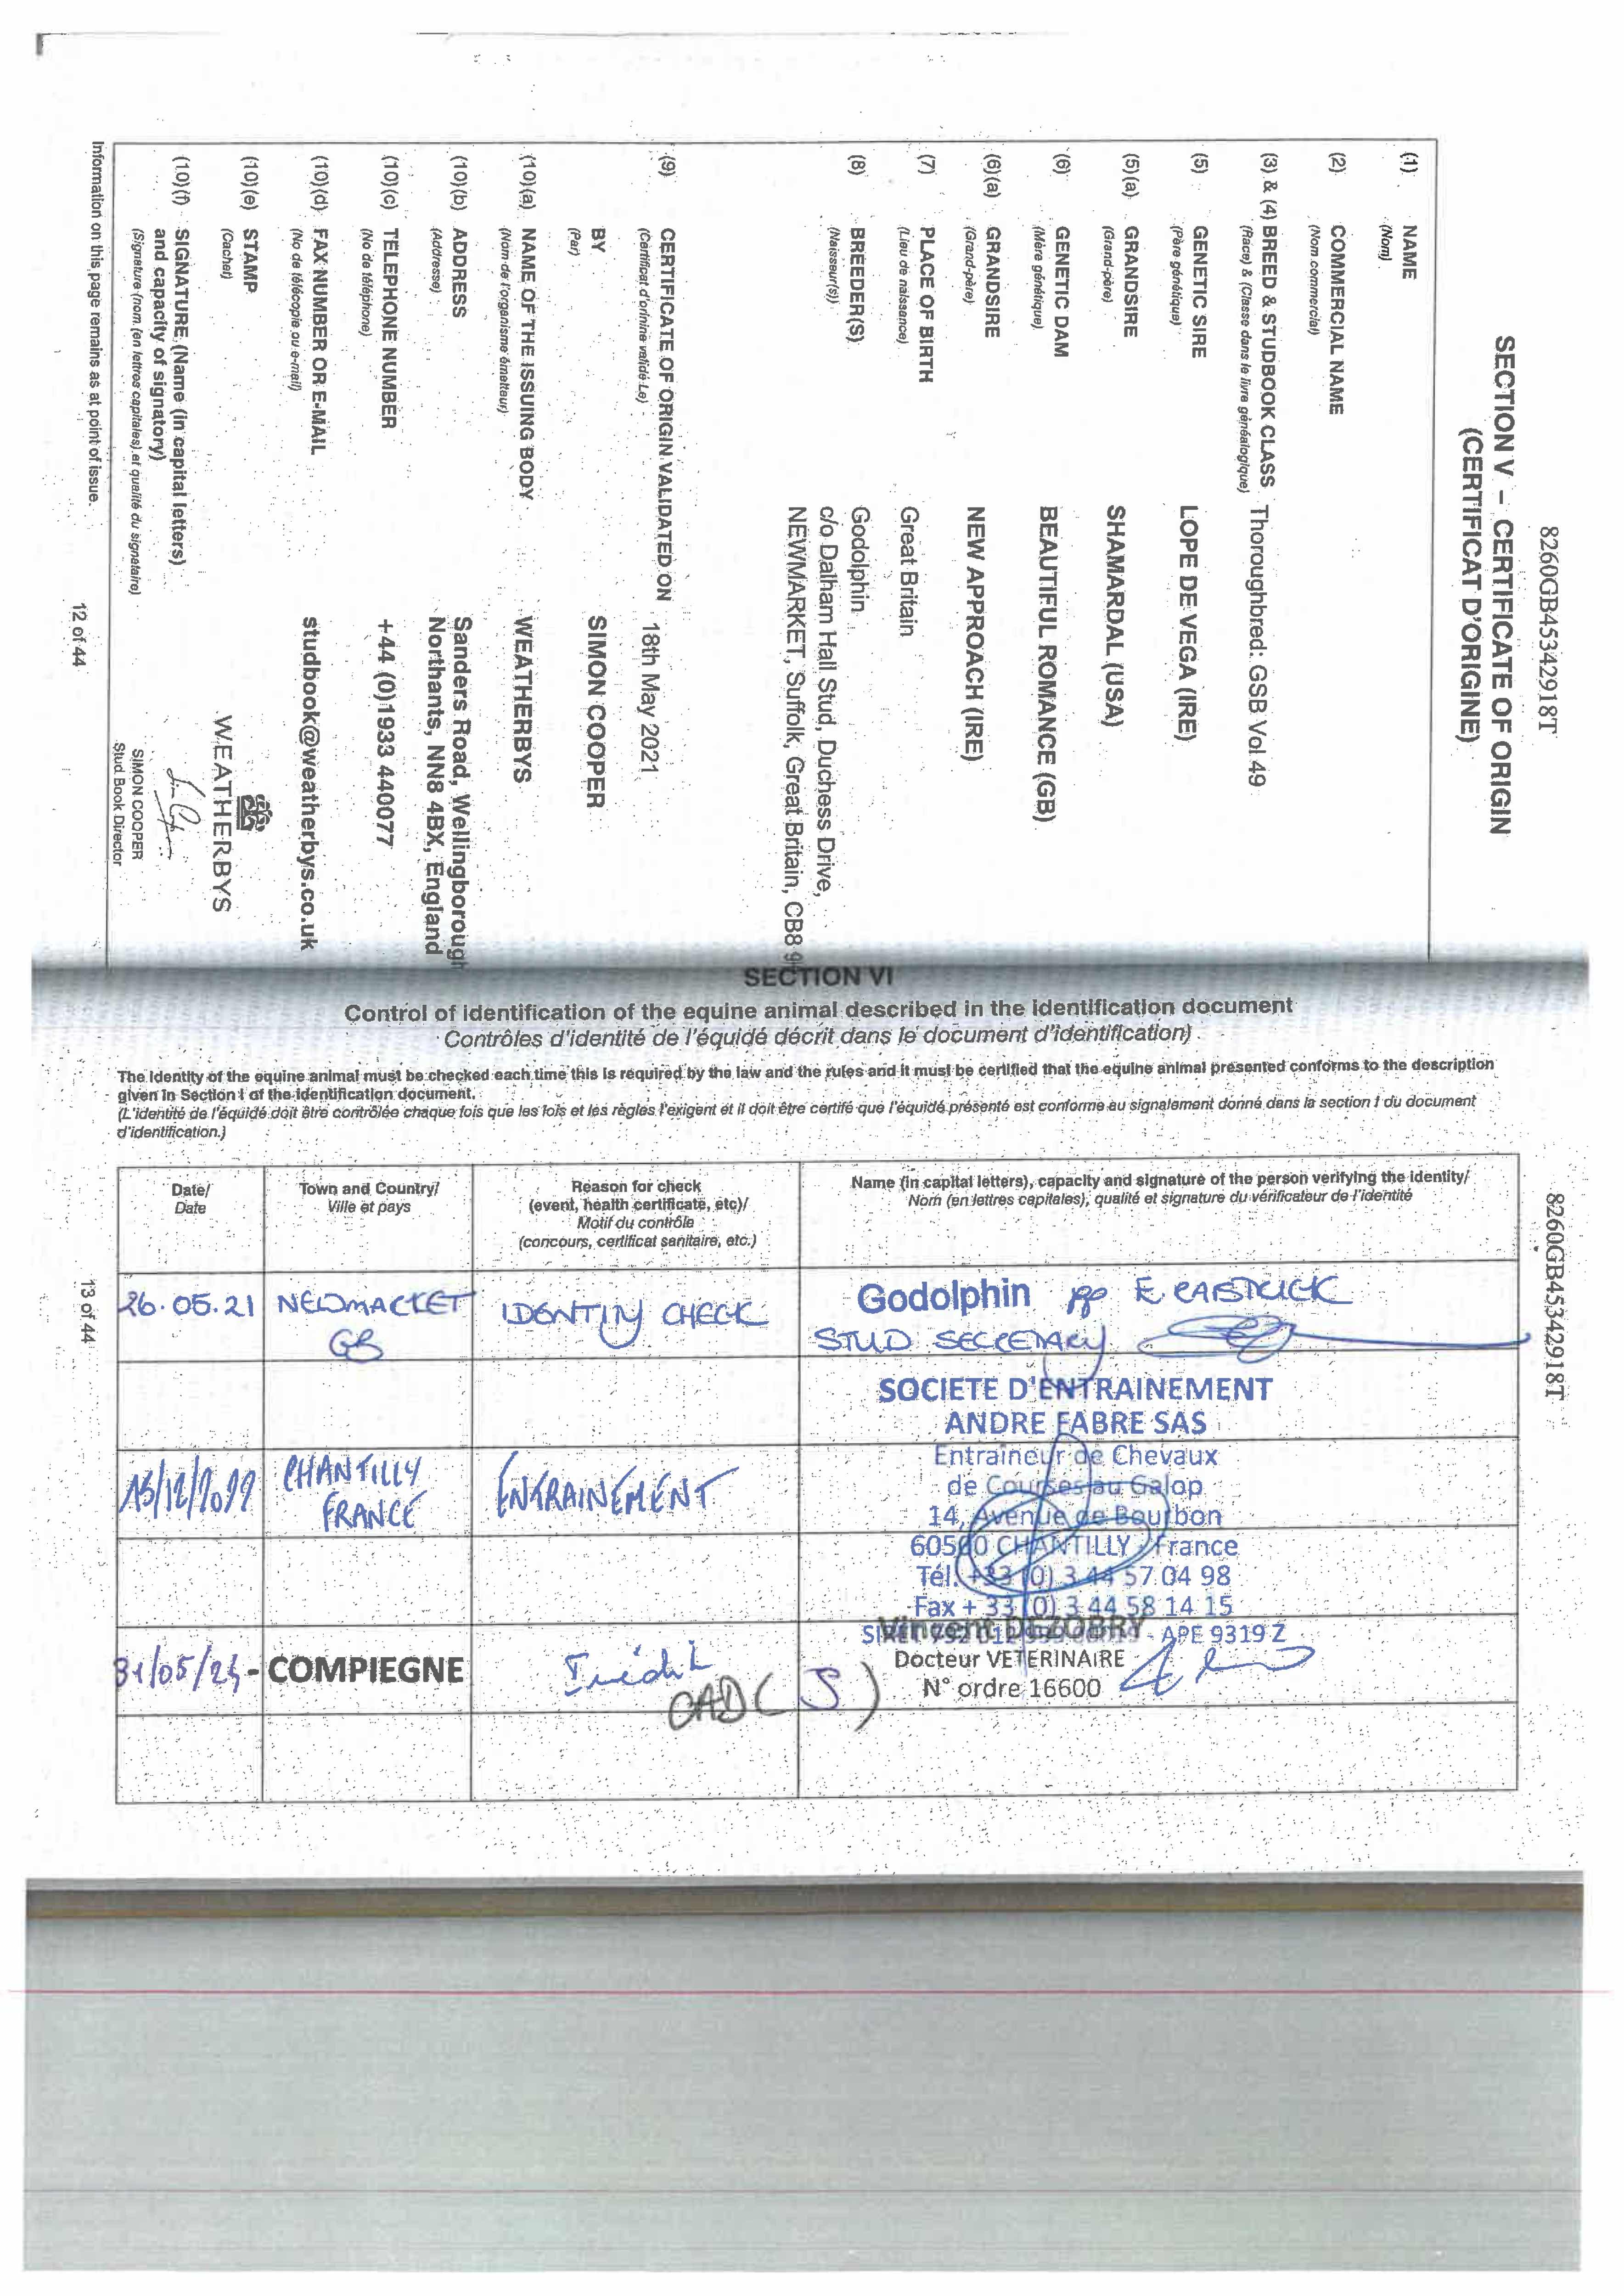 8260GB45342918T
SECTION V – CERTIFICATE OF ORIGIN
(CERTIFICAT D'ORIGINE)
(1) NAME
(Nom)
(2) COMMERCIAL NAME
(Nom commercial)
(3) & (4) BREED & STUDBOOK CLASS Thoroughbred: GSB Vol 49
(Race) & (Classe dans le livre généalogique)
(5) GENETIC SIRE LOPE DE VEGA (IRE)
(Père génétique)
(5)(a) GRANDSIRE SHAMARDAL (USA)
(Grand-père)
(6) GENETIC DAM BEAUTIFUL ROMANCE (GB)
(Mère génétique)
(6)(a) GRANDSIRE NEW APPROACH (IRE)
(Grand-père)
(7) PLACE OF BIRTH Great Britain
(Lieu de naissance)
(8) BREEDER(S) Godolphin
(Naisseur(s)) c/o Dalham Hall Stud, Duchess Drive,
NEWMARKET, Suffolk, Great Britain, CB8
(9) CERTIFICATE OF ORIGIN VALIDATED ON 18th May 2021
(Certificat d'orinine validé Le)
BY SIMON COOPER
(Par)
(10)(a) NAME OF THE ISSUING BODY WEATHERBYS
(Nom de l'organisme émetteur)
(10)(b) ADDRESS Sanders Road, Wellingborough
(Addresse) Northants, NN8 4BX, England
(10)(c) TELEPHONE NUMBER +44 (0)1933 440077
(No de téléphone)
(10)(d) FAX NUMBER OR E-MAIL studbook@weatherbys.co.uk
(No de télécopie ou e-mail)
(10)(e) STAMP WEATHERBYS
(Cachet)
(10)(f) SIGNATURE (Name (in capital letters)
and capacity of signatory)
(Signature (nom (en lettres capitales) et qualité du signataire)
SIMON COOPER
Stud Book Director
Information on this page remains as at point of issue.
12 of 44
SECTION VI
Control of identification of the equine animal described in the identification document
Contrôles d'identité de l'équidé décrit dans le document d'identification)
The identity of the equine animal must be checked each time this is required by the law and the rules and it must be certified that the equine animal presented conforms to the description
given in Section I of the identification document.
(L'identité de l'équidé doit être contrôlée chaque fois que les lois et les règles l'exigent et il doit être certifé que l'équidé présenté est conforme au signalement donné dans la section I du document
d'identification.)
8260GB45342918T
Date/ Town and Country/ Reason for check Name (in capital letters), capacity and signature of the person verifying the identity/
Date Ville et pays (event, health certificate, etc)/ Nom (en lettres capitales), qualité et signature du vérificateur de l'identité
Motif du contrôle
(concours, certificat sanitaire, etc.)
26.05.21 NEWMARKET IDENTITY CHECK Godolphin pp E. RASTRICK
GB STUD SECRETARY
SOCIETE D'ENTRAINEMENT
ANDRE FABRE SAS
Entraineur de Chevaux
de Courses au Galop
15/12/2022 CHANTILLY FRANCE ENTRAINEMENT
14, Avenue de Bourbon
60500 CHANTILLY France
Tél. +33 (0) 3 44 57 04 98
Fax + 33 (0) 3 44 58 14 15
APE 9319 Z
Vincent DEZOBRY
31/05/24 - COMPIEGNE Inédit Docteur VETERINAIRE
CAD (S) N° ordre 16600
13 of 44